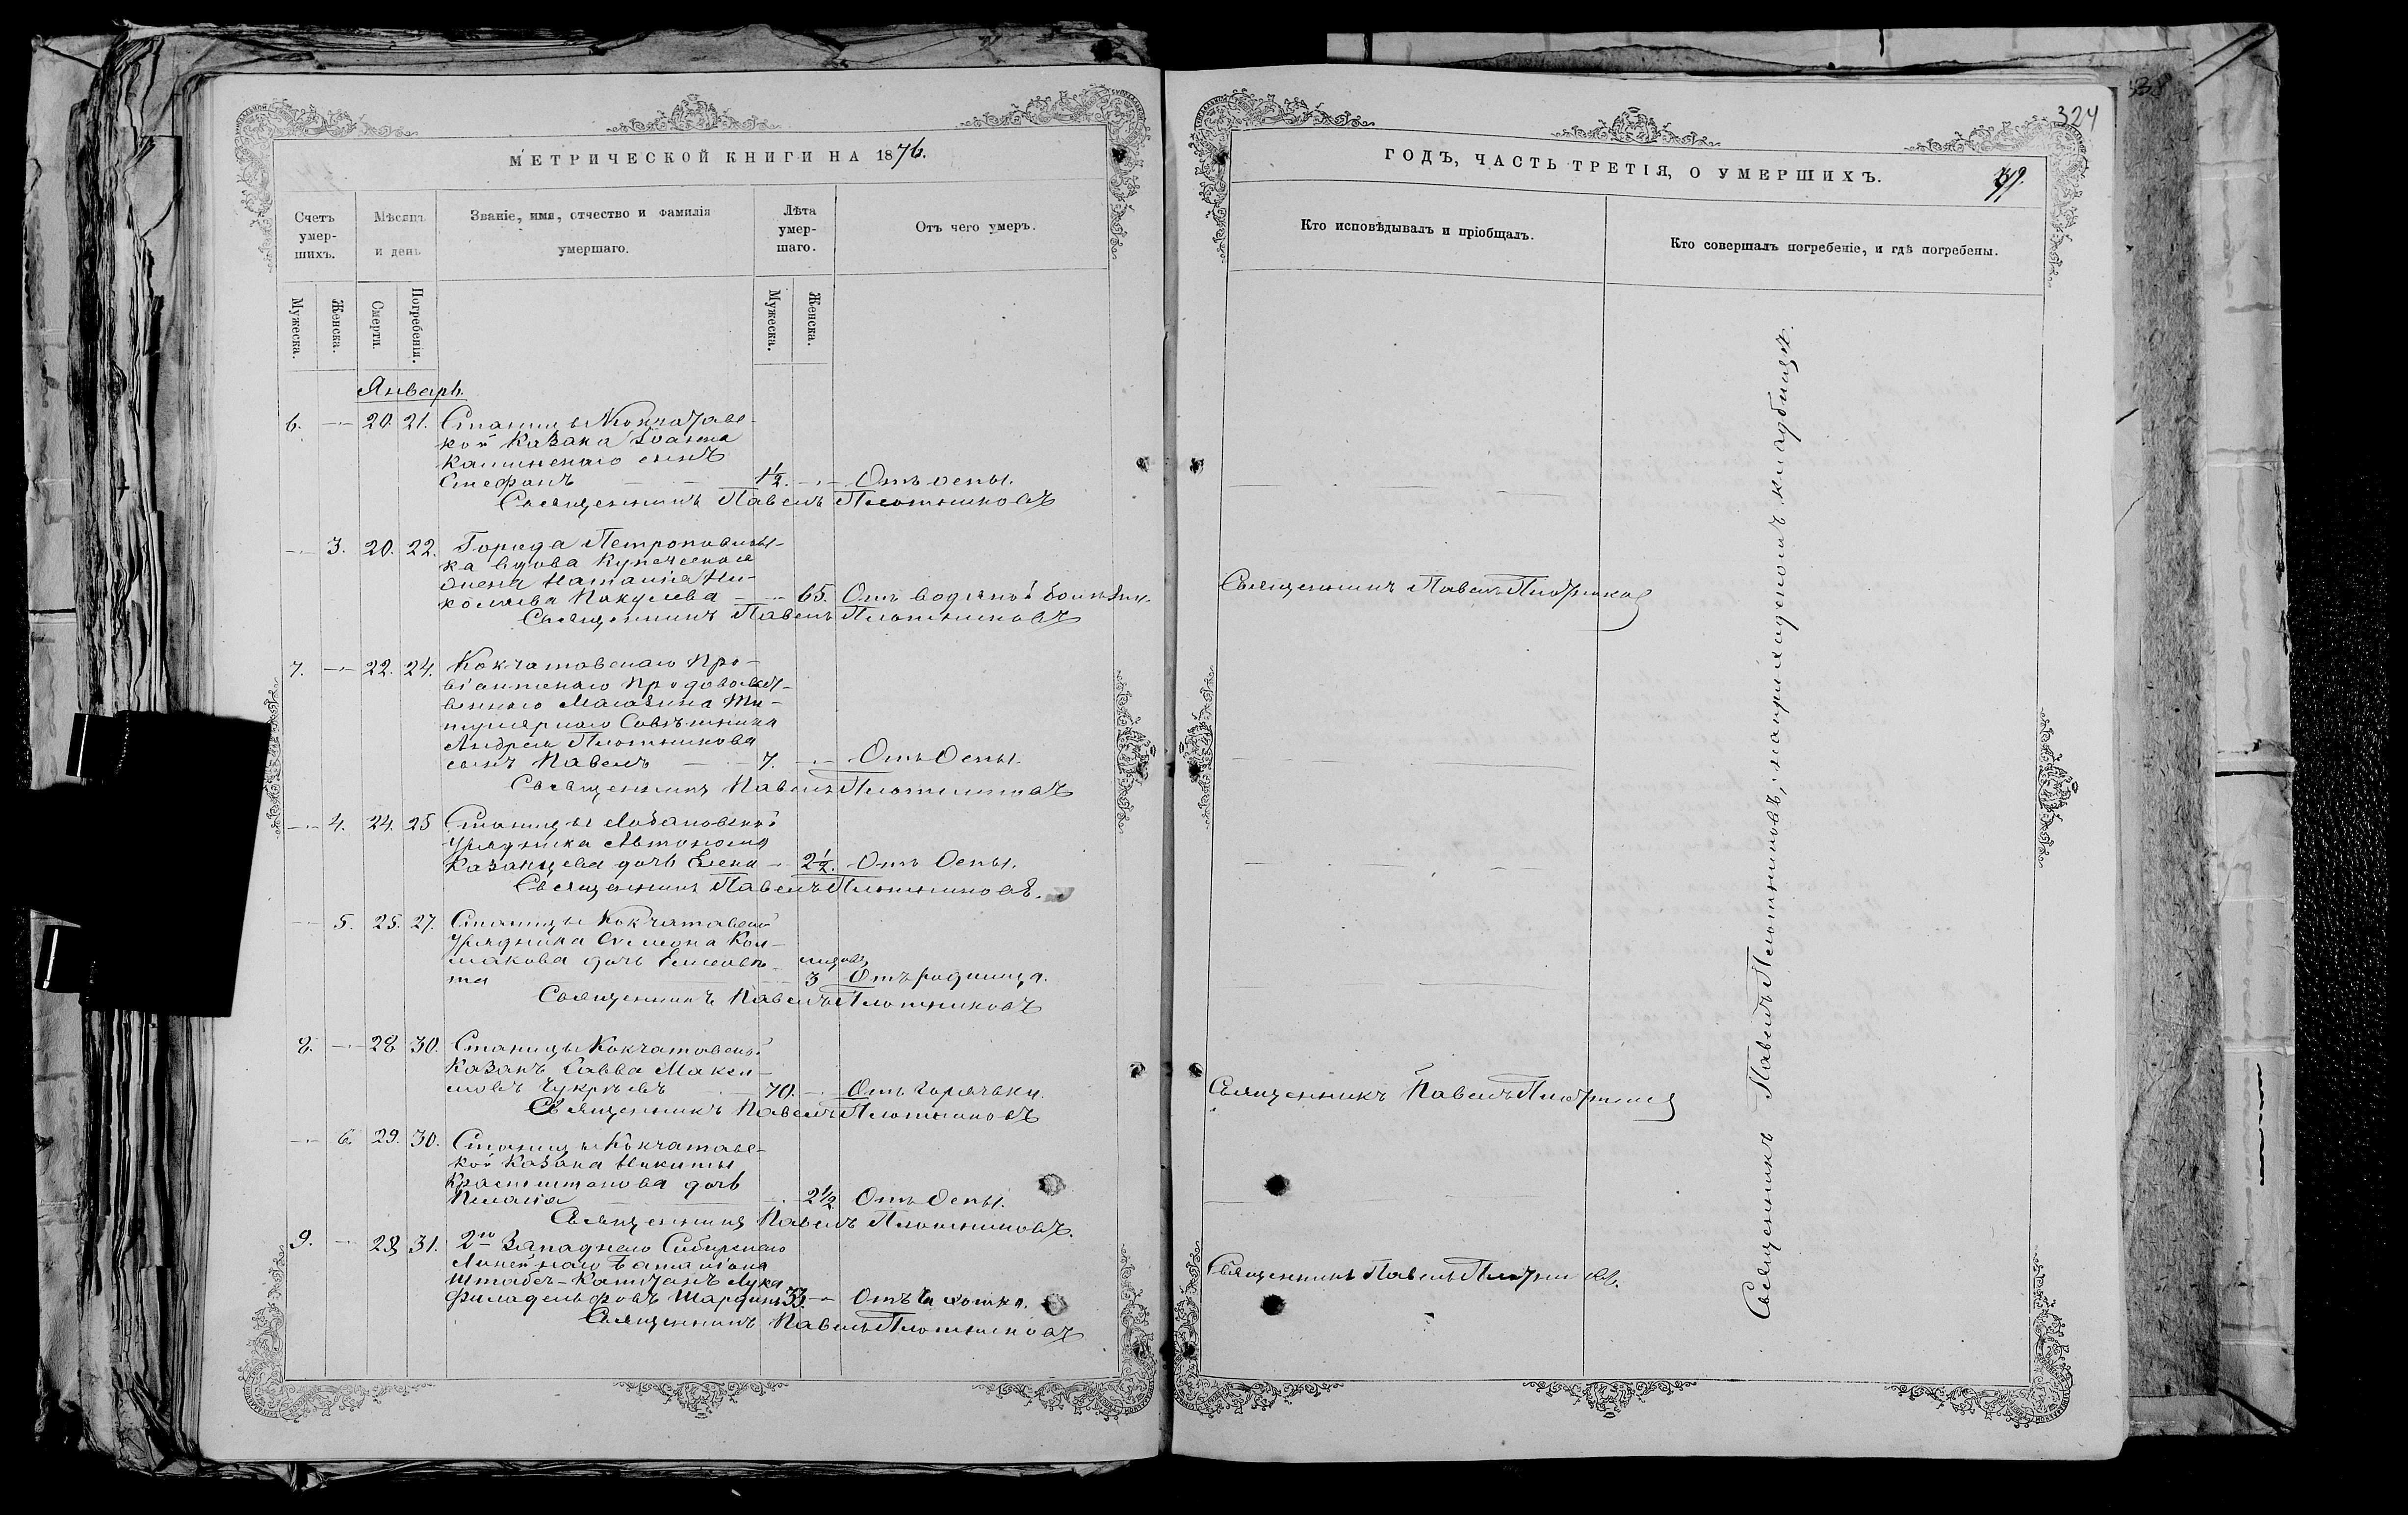 МЕТРИЧЕСКОЙ КНИГИ НА 1876.
Счетъ умер-шихъ.
Мѣсяцъ и день
Званіе, имя, отчество и фамилія умершаго.
Лѣта умер-шаго.
Отъ чего умеръ.
Мужеска.
Женска.
Смерти.
Погребенія.
Мужеска.
Женска.
Январь.
6. 20. 21. Станицы Кокчатавс-
кой Казака Іоанна
Калинскаго сынъ
Стефанъ 1½. Отъ оспы.
Священникъ Павелъ Плотниковъ
3. 20. 22. Города Петропавлов-
ка вдова Купеческая
жена Наталія Ни-
колаева Пакулева 65. Отъ водяной болѣзни.
Священникъ Павелъ Плотниковъ
7. 22. 24. Кокчатавскаго Про-
віантскаго Продовольст-
веннаго Магазина Ти-
тулярнаго Совѣтника
Андрея Плотникова
сынъ Павелъ 7. Отъ Оспы.
Священникъ Павелъ Плотниковъ
4. 24. 25 Станицы Лобановской
Урядника Автонома
Казанцева дочь Елена 2½. Отъ Оспы.
Священникъ Павелъ Плотниковъ.
5. 25. 27. Станицы Кокчатавской
Урядника Симеона Кол-
макова дочь Елисаве-
та 3 Отъ родимца.
Священникъ Павелъ Плотниковъ
8. 28 30. Станицы Кокчатавской
Казакъ Савва Макси-
мовъ Чукрѣевъ 70. Отъ Горячки.
Священникъ Павелъ Плотниковъ
6 29. 30. Станицы Кокчатавс-
кой Казака Никиты
дочь
Пелагія 2½ Отъ Оспы.
Священникъ Павелъ Плотниковъ.
9. 28 31. 2го Западнаго Сибирскаго
Линейнаго Баталіона
Штабсъ-Капитанъ Лука
Филадельфовъ 33. Отъ Чахотки.
Священникъ Павелъ Плотниковъ
324
ГОДЪ, ЧАСТЬ ТРЕТІЯ, О УМЕРШИХЪ.
Кто исповѣдывалъ и пріобщалъ.
Кто совершалъ погребеніе, и гдѣ погребены.
Священникъ Павелъ Плотников
Священникъ Павелъ Плотников
Священникъ Павелъ Плотников.
Священникъ Павелъ Плотниковъ, на приходскомъ кладбищѣ.